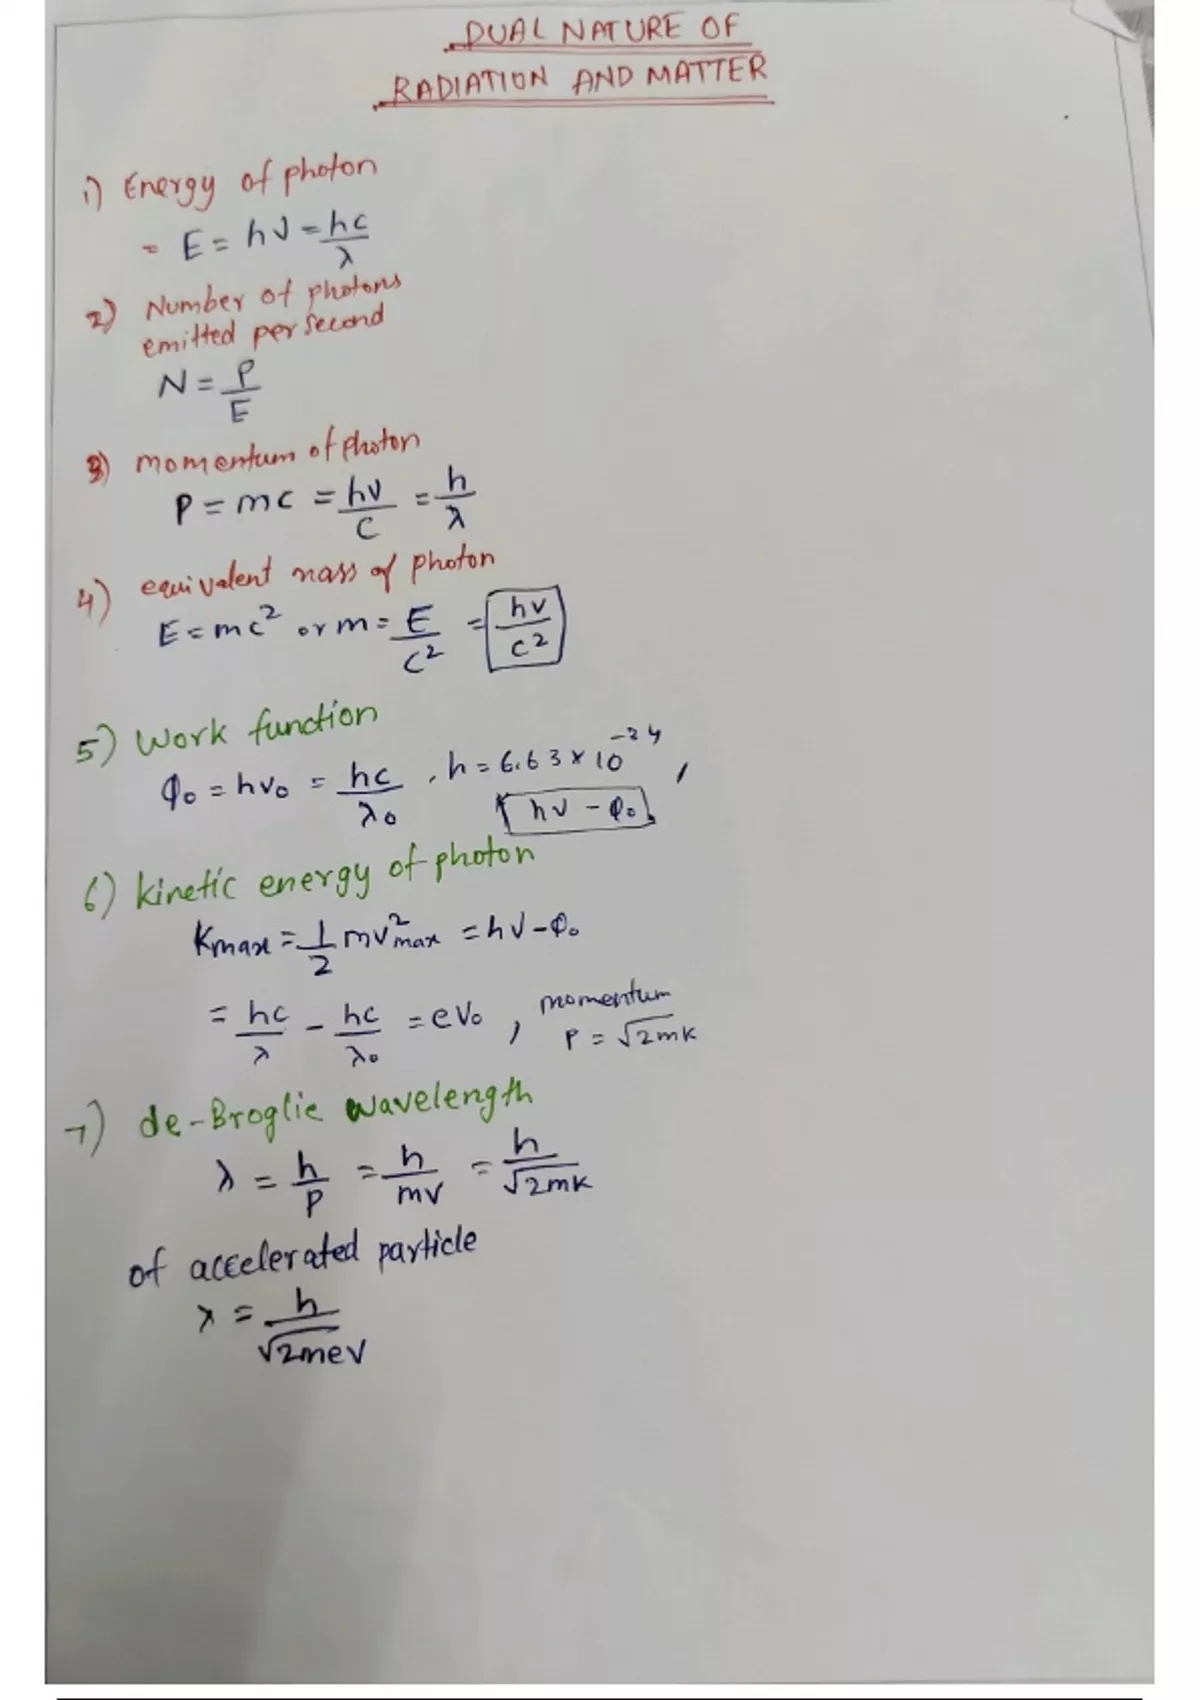 DUAL NATURE OF
RADIATION AND MATTER
1) Energy of photon
= E = hν = hc/λ
2) Number of photons
emitted per second
N = P/E
3) momentum of photon
P = mc = hν/c = h/λ
4) equivalent mass of photon
E = mc² or m = E/c² = hν/c²
5) Work function
φ₀ = hν₀ = hc/λ₀ , h = 6.63 × 10⁻³⁴ ,
hν - φ₀
6) kinetic energy of photon
Kmax = 1/2 mv²max = hν - φ₀
= hc/λ - hc/λ₀ = eV₀ , momentum
P = √2mK
7) de-Broglie wavelength
λ = h/P = h/mv = h/√2mK
of accelerated particle
λ = h/√2meV